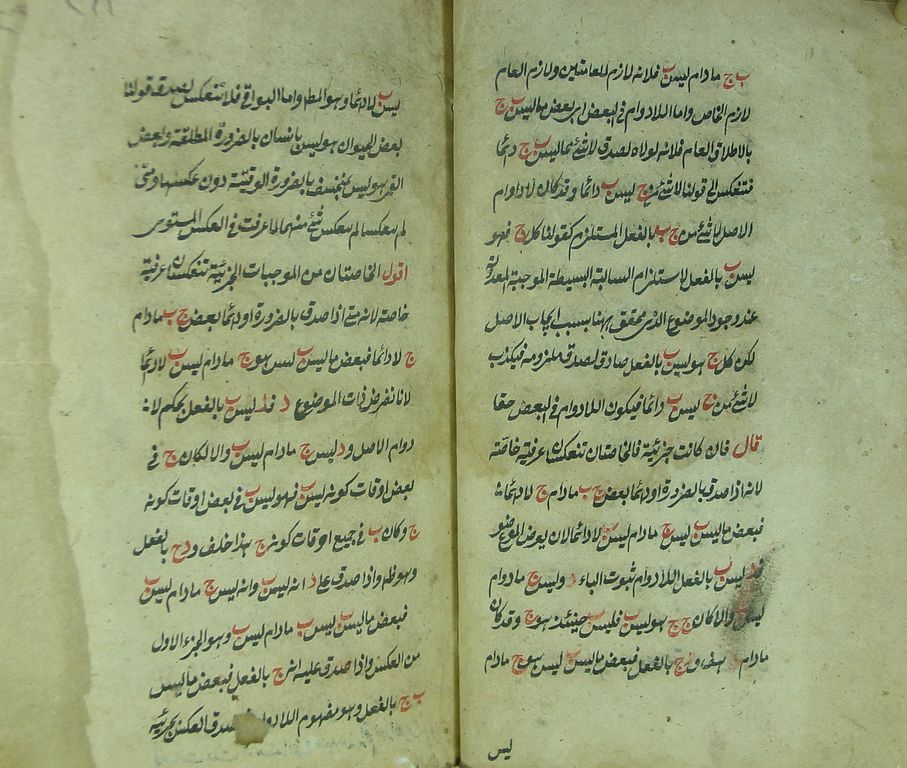 ب ج مادام ليس ب فلانه لازم للعامتين ولازم العام
لازم الخاص واما اللادوام فى البعض اى بعض ماليس ب ج
بالاطلاق العام فلانه لولاه لصدق لا شئ مماليس ب ج دائما
فتنعكس الى قولنا لا شئ من ج ليس ب دائما وقد كان لادوام
الاصل لا شئ من ج ب بالفعل المستلزم كقولنا كل ج فهو
ليس ب بالفعل لاستلزام السالبة البسيطة الموجبة المعدولة
عند وجود الموضوع الذى محقق ههنا بسبب ايجاب الاصل
لكن كل ج هو ليس ب بالفعل صادق لصدق ملزومه فيكذب
لا شئ من ج ليس ب دائما فيكون اللادوام فى البعض حقا
قال فان كانت جزئية فالخاصتان تنعكسان عرفية خاصة
لانه اذا صدق بالضرورة او دائما بعض ج ب مادام ج لا دائما
فبعض ماليس ب ليس ج مادام ليس ب لا دائما لان يفرض الموضوع
ليس ب بالفعل اللادوام ثبوت الباء وليس ج مادام
ليس والا لكان ج ج هو ليس ب فليس ب حينئذ هو ج وقد كان
مادام هف و ج بالفعل فبعض ماليس ب ليس هو ج مادام
ليس
ليس ب لا دائما وهو المط واما البواقى فلا تنعكس لصدق قولنا
بعض الحيوان هو ليس بانسان بالضرورة المطلقة وبعض
القمر هو ليس بمنخسف بالضرورة الوقتية دون عكسهما ومتى
لم تنعكسا لم ينعكس شئ منهما لما عرفت فى العكس المستوى
اقول الخاصتان من الموجبات الجزئية تنعكسان عرفية
خاصة لانه متى اذا صدق بالضرورة او دائما بعض ج ب مادام
ج لا دائما فبعض ماليس ب ليس هو ج مادام ليس ب لا دائما
لانا نفرض ذات الموضوع د فد ليس ب بالفعل بحكم لا
دوام الاصل ود ليس ج مادام ليس ب والا لكان ج فى
بعض اوقات كونه ليس ب فهو ليس ب فى بعض اوقات كونه
ج وكان ب فى جميع اوقات كونه ج هذا خلف ود ج بالفعل
وهو ظه واذا صدق على د انه ليس ب وانه ليس ج مادام ليس ب
فبعض ماليس ب ليس ب مادام ليس ب وهو الجزء الاول
من العكس واذا صدق عليه انه ج بالفعل فبعض ماليس
ب ج بالفعل وهو مفهوم اللادوام فيصدق العكس بجزئيه